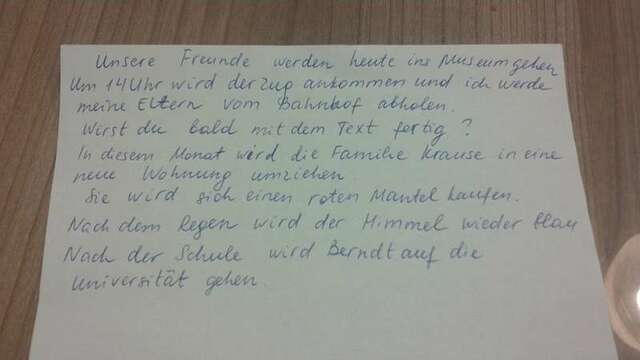 Unsere Freunde werden heute ins Museum gehen
Um 14 Uhr wird der Zug ankommen und ich werde
meine Eltern vom Bahnhof abholen.
Wirst du bald mit dem Text fertig?
In diesem Monat wird die Familie Krause in eine
neue Wohnung umziehen.
Sie wird sich einen roten Mantel kaufen.
Nach dem Regen wird der Himmel wieder blau
Nach der Schule wird Berndt auf die
Universität gehen.